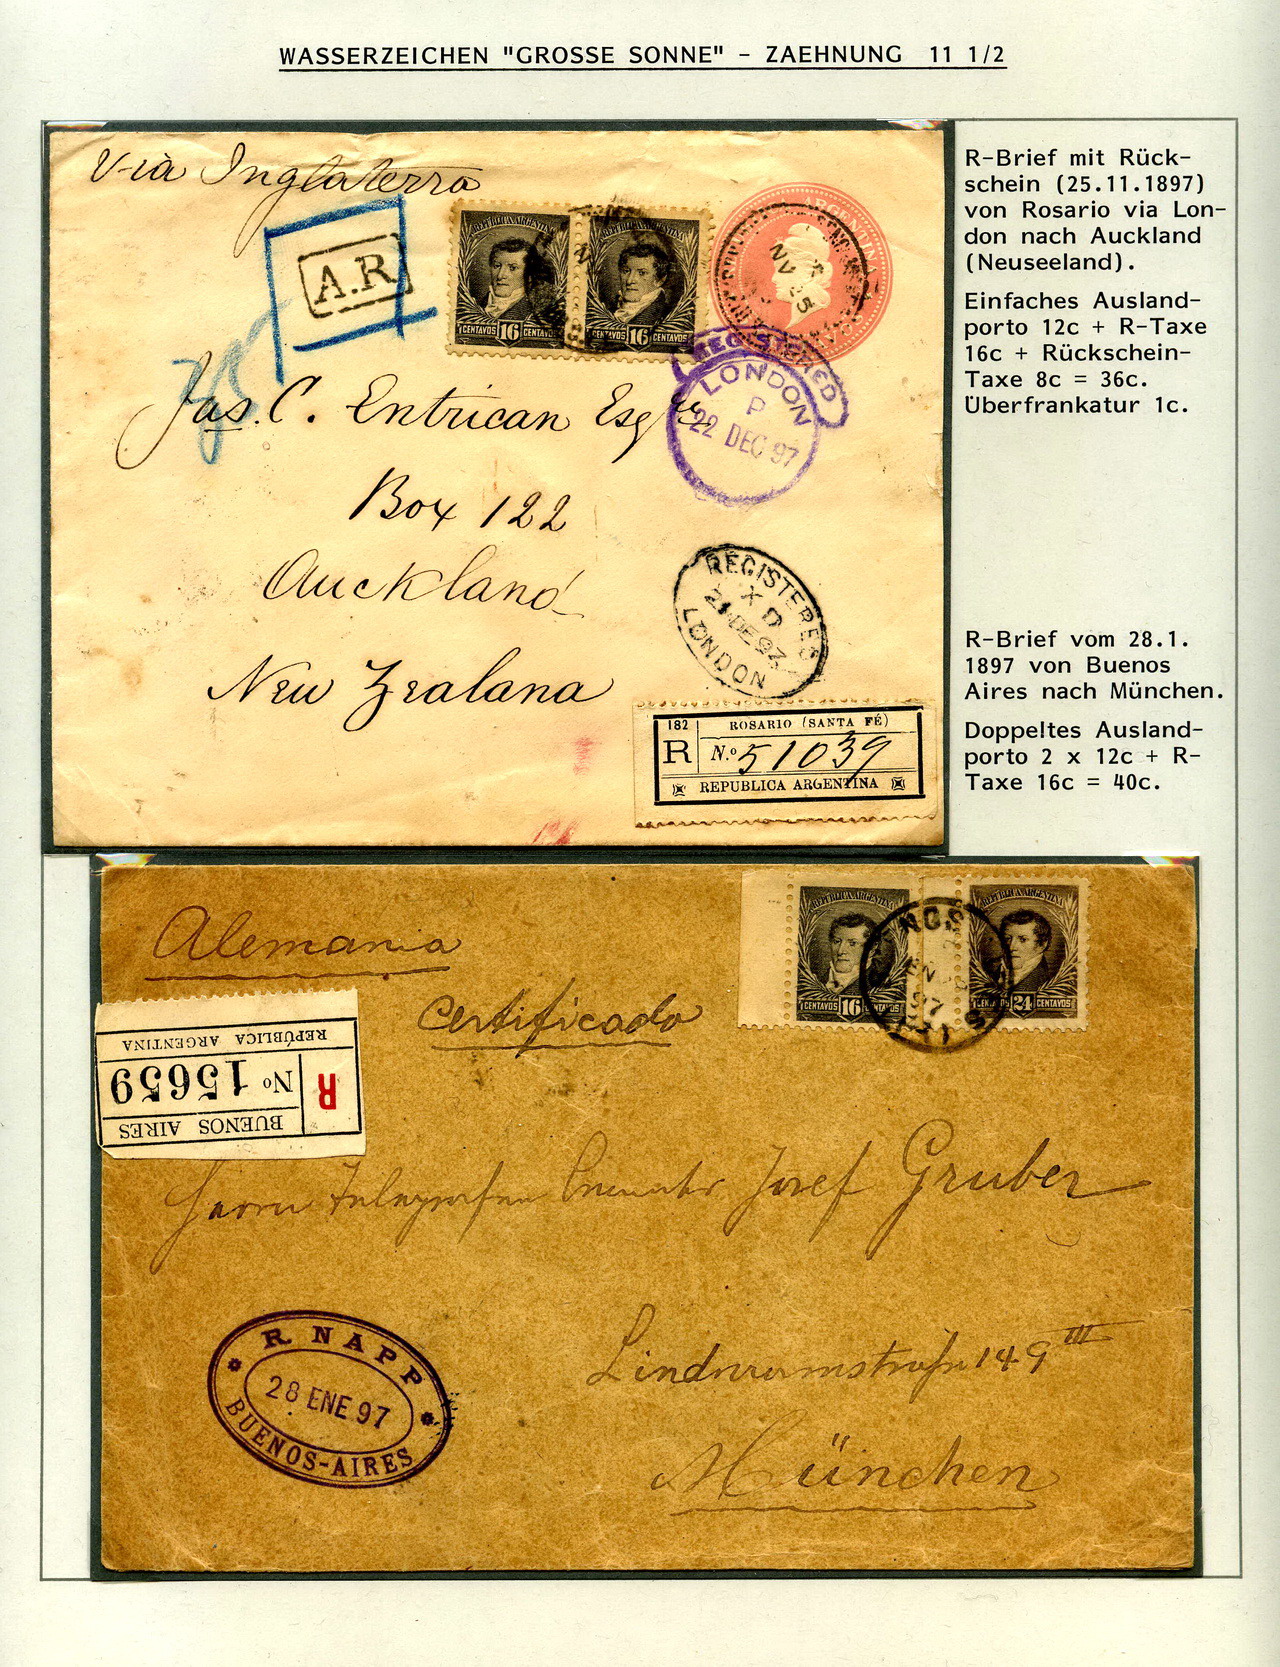 WASSERZEICHEN "GROSSE SONNE" - ZAEHNUNG 11 1/2
Vià Inglaterra
A.R
REPUBLICA ARGENTINA
CENTAVOS 16 CENTAVOS
REPUBLICA ARGENTINA
CENTAVOS 16 CENTAVOS
ARGENTINA
NV 25
REGISTERED
LONDON
P
22 DEC 97
Jas. C. Entrican Esqre
Box 122
Auckland
New Zealand
REGISTERED
X D
21 DE 97
LONDON
182 ROSARIO (SANTA FÉ)
R N.º 51039
REPUBLICA ARGENTINA
R-Brief mit Rück-
schein (25.11.1897)
von Rosario via Lon-
don nach Auckland
(Neuseeland).
Einfaches Ausland-
porto 12c + R-Taxe
16c + Rückschein-
Taxe 8c = 36c.
Überfrankatur 1c.
R-Brief vom 28.1.
1897 von Buenos
Aires nach München.
Doppeltes Ausland-
porto 2 x 12c + R-
Taxe 16c = 40c.
Alemania
Certificado
REPUBLICA ARGENTINA
CENTAVOS 16 CENTAVOS
REPUBLICA ARGENTINA
CENTAVOS 24 CENTAVOS
NOS
EN
97
BUENOS AIRES
R Nº 15659
REPÚBLICA ARGENTINA
Herrn Telegrafen Josef Gruber
Lindwurmstraße 149 III
München
R. NAPP
28 ENE 97
BUENOS-AIRES